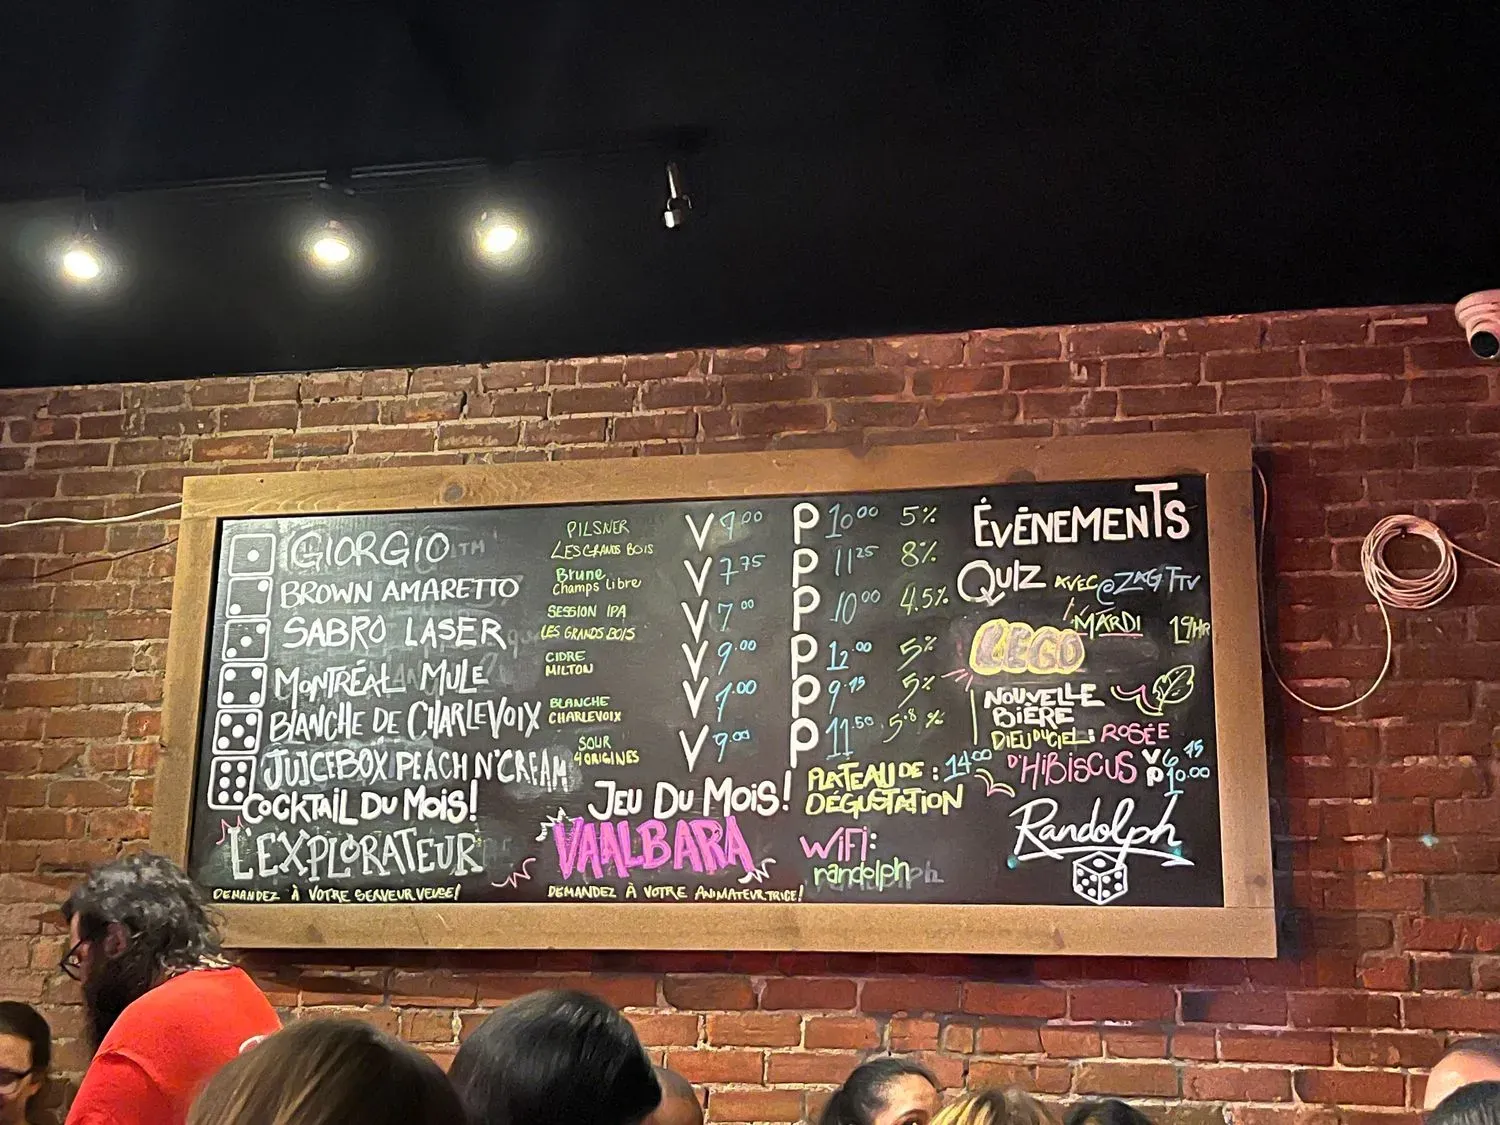 GIORGIO PILSNER LES GRANDS BOIS V 7.00 P 10.00 5%
BROWN AMARETTO Brune Champs Libre V 7.75 P 11.25 8%
SABRO LASER SESSION IPA LES GRANDS BOIS V 7.00 P 10.00 4.5%
MONTRÉAL MULE CIDRE MILTON V 9.00 P 12.00 5%
BLANCHE DE CHARLEVOIX BLANCHE CHARLEVOIX V 7.00 P 9.75 5%
JUICEBOX PEACH N'CREAM SOUR 4 ORIGINES V 9.00 P 11.50 5.8%
COCKTAIL DU MOIS!
L'EXPLORATEUR
DEMANDEZ À VOTRE SERVEUR.VEUSE!
JEU DU MOIS!
VAALBARA
DEMANDEZ À VOTRE ANIMATEUR.TRICE!
PLATEAU DE : 14.00
DÉGUSTATION
WiFi:
randolph
ÉVÉNEMENTS
QUIZ AVEC @ZAGTTV
LEGO MARDI 19HR
NOUVELLE
BIÈRE
DIEU DU CIEL: ROSÉE
D'HIBISCUS V 6.75
P 10.00
Randolph